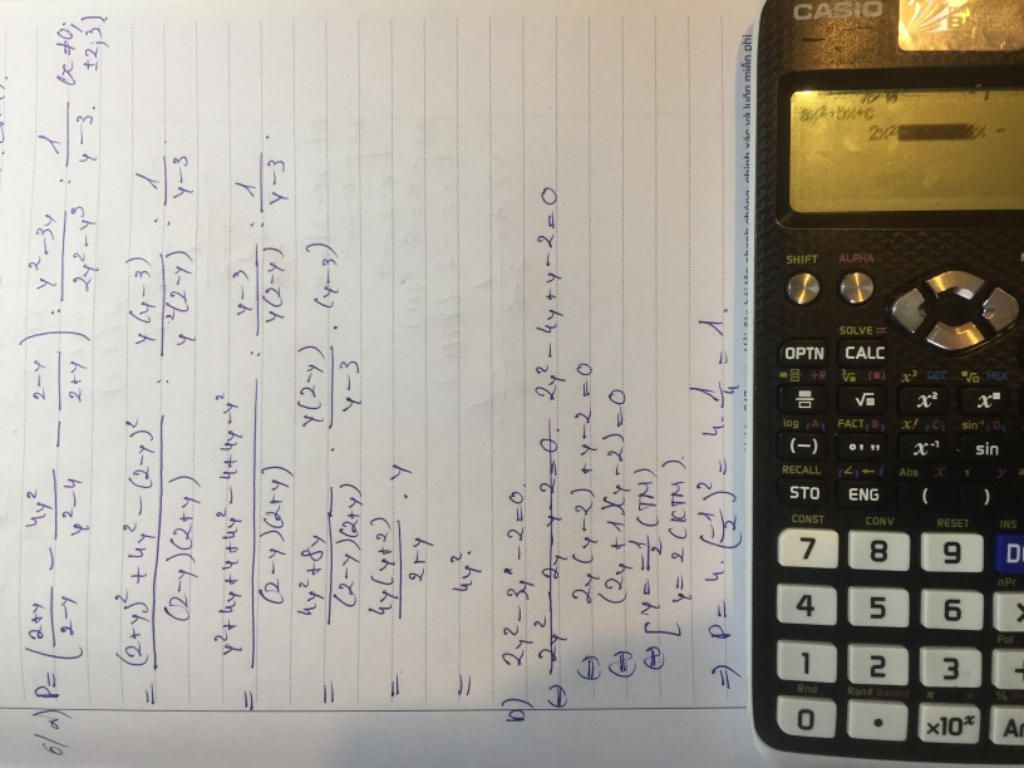 6/ a) P = (2+y/2-y - 4y²/y²-4 - 2-y/2+y) : y²-3y/2y²-y³ : 1/y-3. (x≠0; ±2; 3)
= (2+y)² + 4y² - (2-y)²/(2-y)(2+y) : y(y-3)/y²(2-y) : 1/y-3
= y²+4y+4+4y²-4+4y-y²/(2-y)(2+y) : y-3/y(2-y) : 1/y-3.
= 4y²+8y/(2-y)(2+y) . y(2-y)/y-3 . (y-3)
= 4y(y+2)/2+y . y
= 4y².
b) 2y² - 3y - 2 = 0.
2y² - 4y + y - 2 = 0
⇔ 2y(y-2) + y - 2 = 0
⇔ (2y+1)(y-2) = 0
⇔ [ y = -1/2 (TM)
y = 2 (KTM).
⇒ P = 4. (-1/2)² = 4. 1/4 = 1.
CASIO
ax²+bx+c
2x²
SHIFT ALPHA
SOLVE =
OPTN CALC
x³ DEC HEX
√ x² x
log A FACT B x! C sin⁻¹ D
(-) ° ' " x⁻¹ sin
RECALL ∠ ← i Abs x y
STO ENG ( )
CONST CONV RESET INS
7 8 9
nPr
4 5 6
Pol
1 2 3
Rnd Ran# RanInt π
0 • ×10ˣ